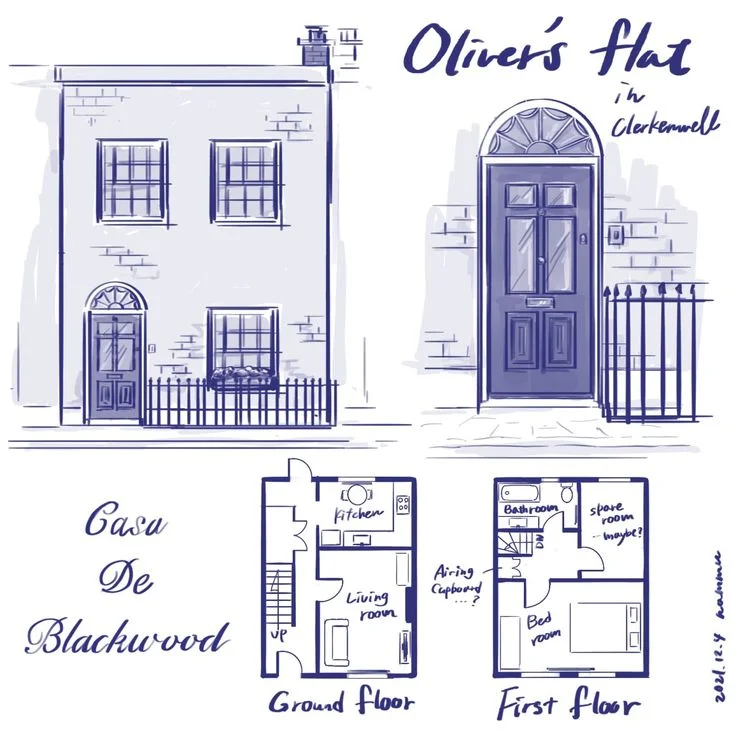 Oliver's flat
in
Clerkenwell
Casa
De
Blackwood
Kitchen
Living
room
UP
Ground floor
Bathroom
spare
room
maybe?
DN
Airing
Cupboard
...?
Bed
room
First floor
2021.12.4